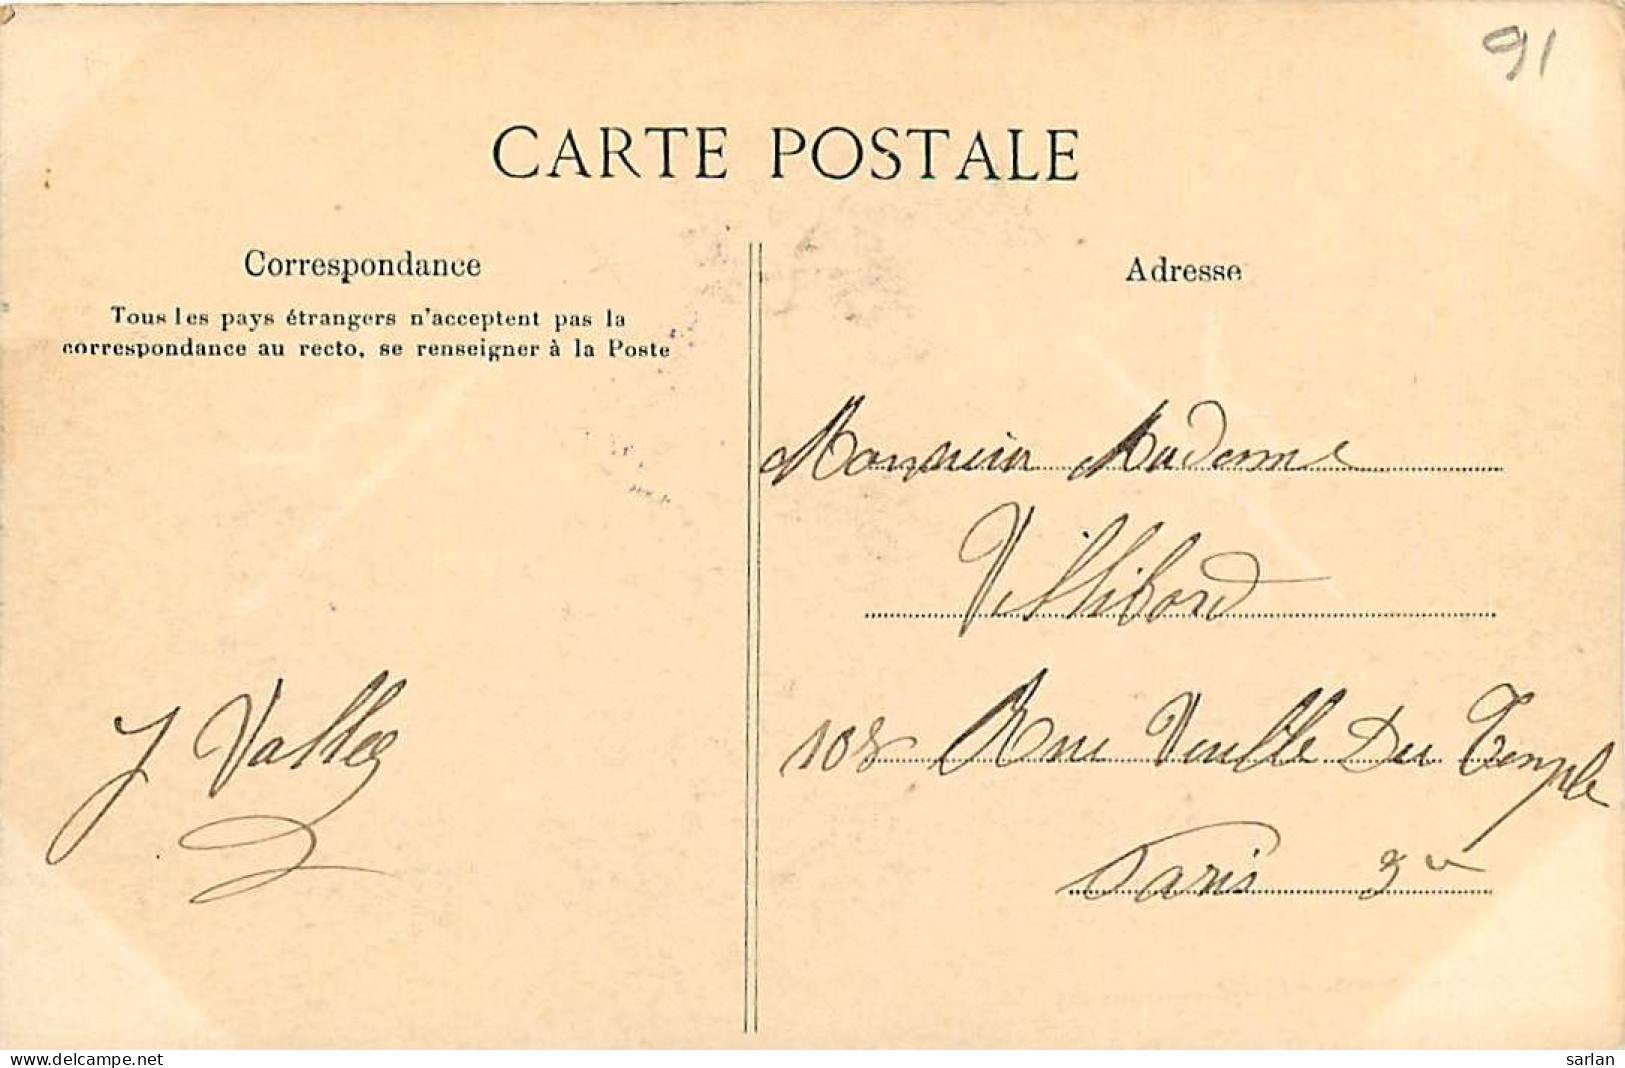 91
CARTE POSTALE
Correspondance
Tous les pays étrangers n'acceptent pas la
correspondance au recto, se renseigner à la Poste
J Vallez
Adresse
Monsieur Madame
Villibord
108 Rue Veille Du Temple
Paris 3e
delcampe.net
sarlan